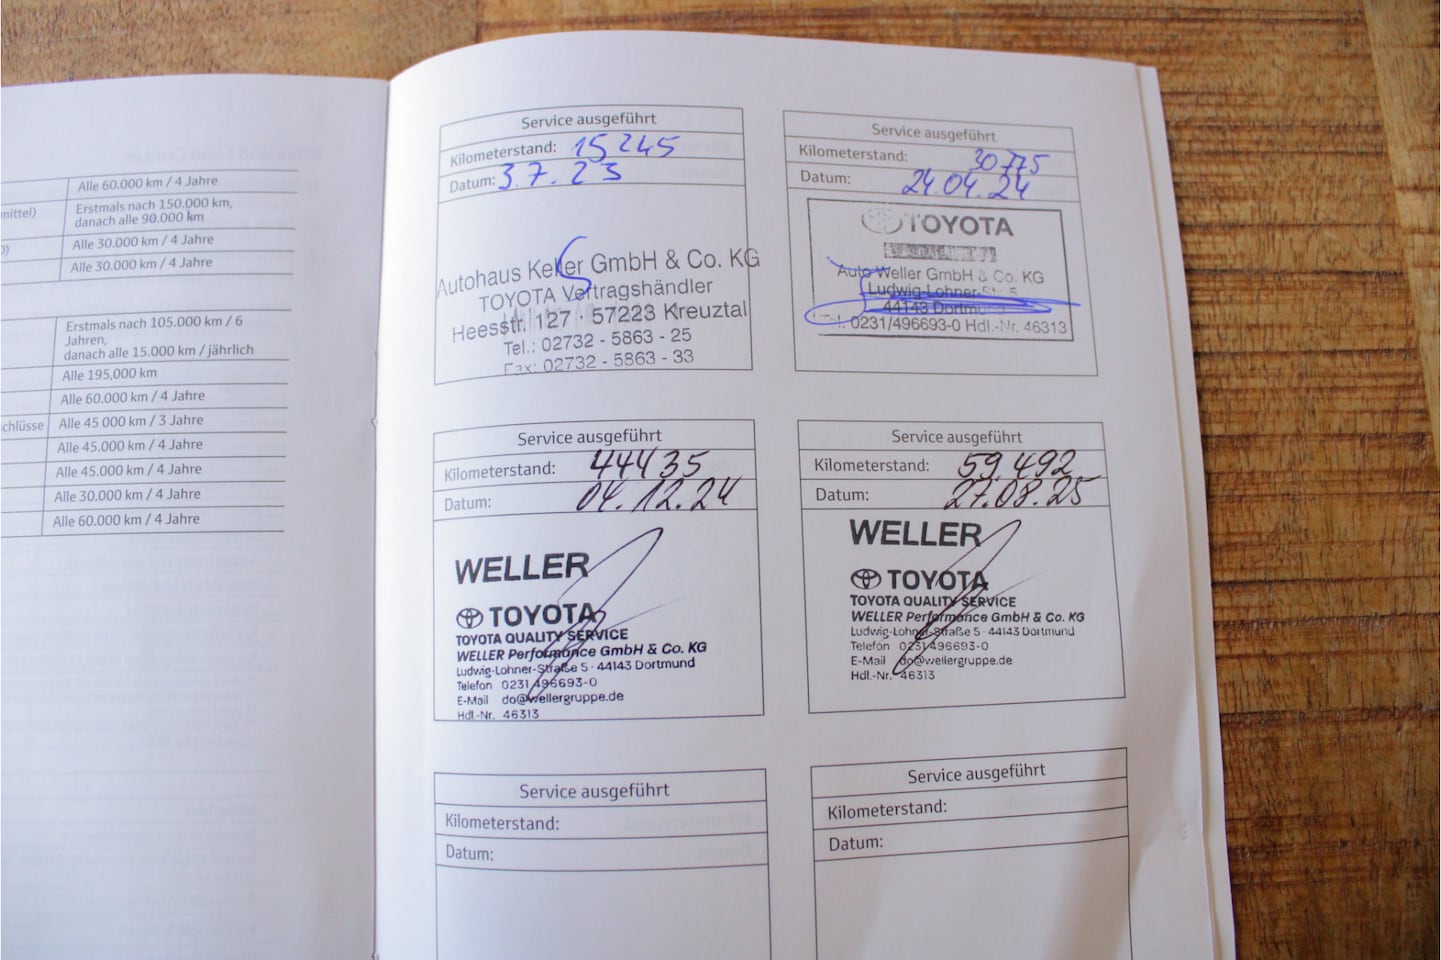 Alle 60.000 km / 4 Jahre
mittel) Erstmals nach 150.000 km,
danach alle 90.000 km
Alle 30.000 km / 4 Jahre
Alle 30.000 km / 4 Jahre
Erstmals nach 105.000 km / 6
Jahren,
danach alle 15.000 km / jährlich
Alle 195,000 km
Alle 60.000 km / 4 Jahre
chlüsse Alle 45 000 km / 3 Jahre
Alle 45.000 km / 4 Jahre
Alle 45.000 km / 4 Jahre
Alle 30.000 km / 4 Jahre
Alle 60.000 km / 4 Jahre
Service ausgeführt
Kilometerstand: 15 245
Datum: 3.7.23
Autohaus Keller GmbH & Co. KG
TOYOTA Vertragshändler
Heesstr. 127 · 57223 Kreuztal
Tel.: 02732 - 5863 - 25
Fax: 02732 - 5863 - 33
Service ausgeführt
Kilometerstand: 30775
Datum: 24.04.24
TOYOTA
Auto Weller GmbH & Co. KG
Ludwig-Lohner-Str. 5
44143 Dortmund
Tel. 0231/496693-0 Hdl.-Nr. 46313
Service ausgeführt
Kilometerstand: 44435
Datum: 04.12.24
WELLER
TOYOTA
TOYOTA QUALITY SERVICE
WELLER Performance GmbH & Co. KG
Ludwig-Lohner-Straße 5 · 44143 Dortmund
Telefon 0231 496693-0
E-Mail do@wellergruppe.de
Hdl.-Nr. 46313
Service ausgeführt
Kilometerstand: 59.492
Datum: 27.08.25
WELLER
TOYOTA
TOYOTA QUALITY SERVICE
WELLER Performance GmbH & Co. KG
Ludwig-Lohner-Straße 5 · 44143 Dortmund
Telefon 0231 496693-0
E-Mail do@wellergruppe.de
Hdl.-Nr. 46313
Service ausgeführt
Kilometerstand:
Datum:
Service ausgeführt
Kilometerstand:
Datum: